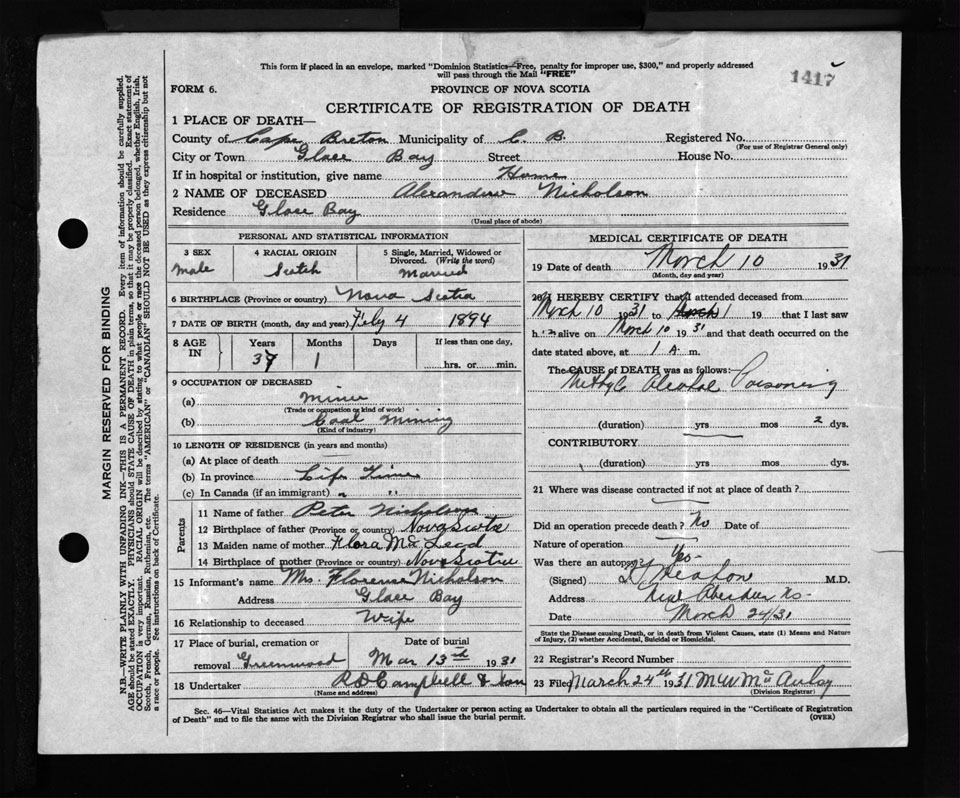 This form if placed in an envelope, marked "Dominion Statistics—Free, penalty for improper use, $300," and properly addressed
will pass through the Mail "FREE"
1417
FORM 6.
PROVINCE OF NOVA SCOTIA
CERTIFICATE OF REGISTRATION OF DEATH
1 PLACE OF DEATH—
County of Cape Breton Municipality of C. B. Registered No.
(For use of Registrar General only)
City or Town Glace Bay Street House No.
If in hospital or institution, give name Home
2 NAME OF DECEASED Alexander Nicholson
Residence Glace Bay
(Usual place of abode)
PERSONAL AND STATISTICAL INFORMATION
3 SEX
Male
4 RACIAL ORIGIN
Scotch
5 Single, Married, Widowed or
Divorced. (Write the word)
Married
6 BIRTHPLACE (Province or country) Nova Scotia
7 DATE OF BIRTH (month, day and year) 4 1894
8 AGE
IN
Years
37
Months
1
Days
If less than one day,
hrs. or min.
9 OCCUPATION OF DECEASED
(a) Miner
(Trade or occupation or kind of work)
(b) Coal Mining
(Kind of industry)
10 LENGTH OF RESIDENCE (in years and months)
(a) At place of death
(b) In province Life Time
(c) In Canada (if an immigrant) " "
Parents
11 Name of father Peter Nicholson
12 Birthplace of father (Province or country) Nova Scotia
13 Maiden name of mother Flora McLeod
14 Birthplace of mother (Province or country) Nova Scotia
15 Informant's name Mrs. Florence Nicholson
Address Glace Bay
16 Relationship to deceased Wife
17 Place of burial, cremation or
removal Greenwood
Date of burial
Mar 13th 1931
18 Undertaker R D Campbell & Son
(Name and address)
MEDICAL CERTIFICATE OF DEATH
19 Date of death March 10 1931
(Month, day and year)
20 I HEREBY CERTIFY that I attended deceased from
March 10 1931 to March 1 19 that I last saw
h im alive on March 10 1931 and that death occurred on the
date stated above, at 1 A. m.
The CAUSE OF DEATH was as follows:
Methyl Alcohol Poisoning
(duration) yrs mos 2 dys.
CONTRIBUTORY
(duration) yrs. mos. dys.
21 Where was disease contracted if not at place of death?
Did an operation precede death? No Date of
Nature of operation
Was there an autopsy? Yes
(Signed) M.D.
Address New Aberdeen NS
Date March 24/31
State the Disease causing Death, or in death from Violent Causes, state (1) Means and Nature
of Injury, (2) whether Accidental, Suicidal or Homicidal.
22 Registrar's Record Number
23 Filed March 24th 1931 M W
(Division Registrar)
Sec. 46—Vital Statistics Act makes it the duty of the Undertaker or person acting as Undertaker to obtain all the particulars required in the "Certificate of Registration
of Death" and to file the same with the Division Registrar who shall issue the burial permit.
(OVER)
MARGIN RESERVED FOR BINDING
N.B.—WRITE PLAINLY WITH UNFADING INK—THIS IS A PERMANENT RECORD. Every item of information should be carefully supplied.
AGE should be stated EXACTLY. PHYSICIANS should STATE CAUSE OF DEATH in plain terms, so that it may be properly classified. Exact statement of
OCCUPATION is very important. RACIAL ORIGIN will be described by stating to what people or race the deceased person belonged, whether English, Irish,
Scotch, French, German, Russian, Ruthenian, etc. The terms "AMERICAN" or "CANADIAN" SHOULD NOT BE USED as they express citizenship but not
a race or people. See instructions on back of Certificate.